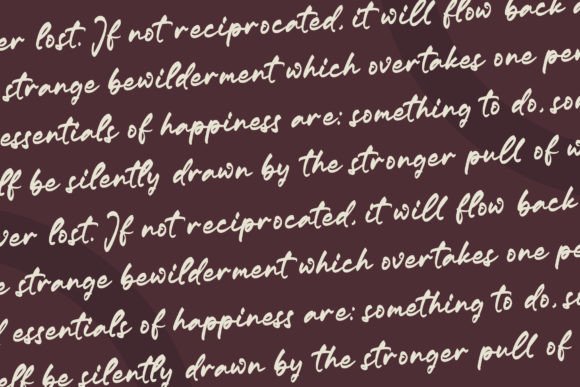 er lost. If not reciprocated, it will flow back a
strange bewilderment which overtakes one per
essentials of happiness are: something to do, som
lf be silently drawn by the stronger pull of w
ver lost. If not reciprocated, it will flow back
e strange bewilderment which overtakes one pe
essentials of happiness are: something to do, so
elf be silently drawn by the stronger pull of